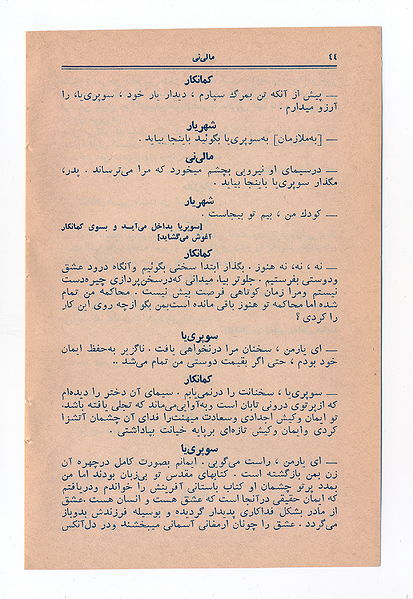 ۴۴ مالی‌نی
کمانکار
— پیش از آنکه تن بمرگ سپارم ، دیدار یار خود ، سوپری‌یا، را
آرزو میدارم .
شهریار
— [به‌ملازمان] به‌سوپری‌یا بگوئید باینجا بیاید .
مالی‌نی
— درسیمای او نیرویی بچشم میخورد که مرا می‌ترساند . پدر،
مگذار سوپری‌یا باینجا بیاید .
شهریار
— کودک من ، بیم تو بیجاست .
[سوپریا بداخل می‌آیـد و بسوی کمانکار
آغوش می‌گشاید]
کمانکار
— نه ، نه، نه هنوز . بگذار ابتدا سخنی بگوئیم وآنگاه درود عشق
ودوستی بفرستیم . جلوتر بیا. میدانی که‌درسخن‌پردازی چیره‌دست
نیستم ومرا زمان کوتاهی فرصت بیش نیست . محاکمه من تمام
شده اما محاکمه تو هنوز باقی مانده است‌بمن بگو ازچه روی این کار
را کردی ؟
سوپری‌یا
— ای یارمن ، سخنان مرا درنخواهی یافت . ناگزیر به‌حفظ ایمان
خود بودم ، حتی اگر بقیمت دوستی من تمام می‌شد..
کمانکار
— سوپری‌یا ، سخنانت را درنمی‌یابم . سیمای آن دختر را دیده‌ام
که ازپرتوی درونی تابان است وبه‌آوایی‌می‌ماند که تجلی یافته باشد.
تو ایمان وکیش اجدادی وسعادت میهنت‌را فدای آن چشمان آتشزا
کردی وایمان وکیش تازه‌ای برپایه خیانت بپاداشتی .
سوپری‌یا
— ای یارمن ، راست می‌گویی . ایمانم بصورت کامل درچهره آن
زن بمن بازگشته است . کتابهای مقدس تو بی‌زبان بودند اما من
بمدد پرتو چشمان او کتاب باستانی آفرینش را خواندم ودریافتم
که ایمان حقیقی درآنجا است که عشق هست و انسان هست .عشق
از مادر بشکل فداکاری پدیدار گردیده و بوسیله فرزندش بدوباز
می‌گردد . عشق را چونان ارمغانی آسمانی میبخشند ودر دل‌آنکس